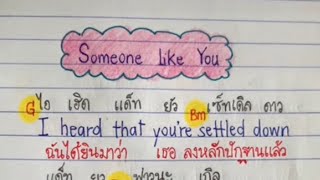 Someone Like You
G ไอ เฮิด แด็ท ยัว Bm เซ็ทเดิล ดาว
I heard that you're settled down
ฉันได้ยินมาว่า เธอ ลงหลักปักฐานแล้ว